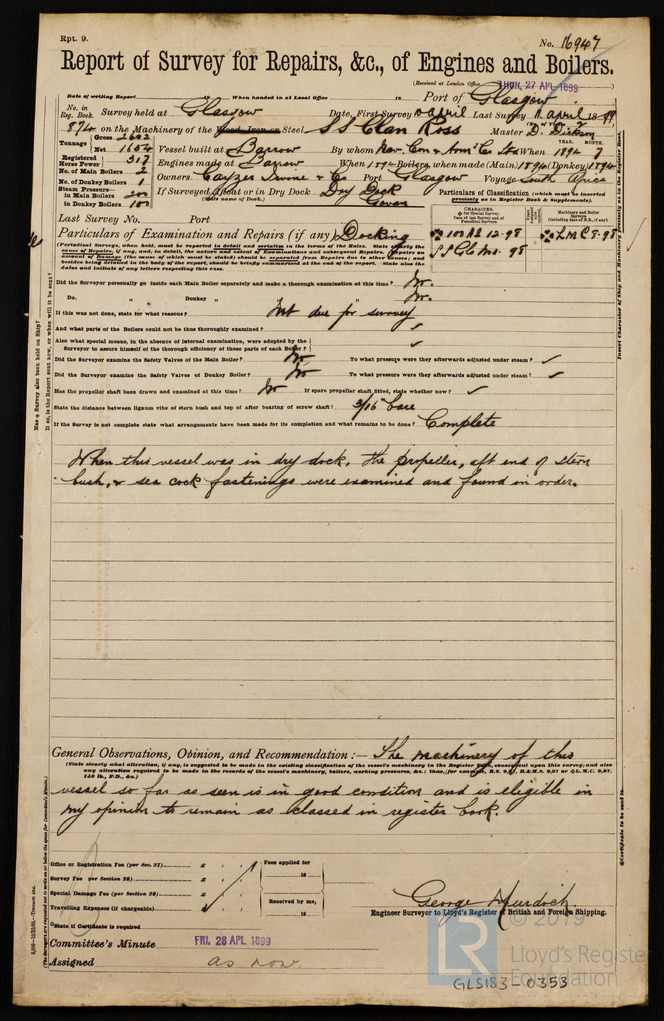 Rpt. 9.
No. 16947
Report of Survey for Repairs, &c., of Engines and Boilers.
(Received at London Office THUR. 27 APL 1899 )
Date of writing Report 18 When handed in at Local Office 18 Port of Glasgow
No. in Reg. Book. Survey held at Glasgow Date, First Survey April Last Survey April 1899
874 on the Machinery of the Wood, Iron or Steel SS Clan Ross Master D. Dickson
Tonnage Gross 2602 Net 1654 Vessel built at Barrow By whom Nav. Con & Arm. Co Ltd When 1894 7
Registered Horse Power 317 Engines made at Barrow When 1894 Boilers, when made (Main) 1894 (Donkey) 1894
No. of Main Boilers 2 Owners Cayzer Irvine & Co Port Glasgow Voyage South Africa
No. of Donkey Boilers 1
Steam Pressure in Main Boilers 200 If Surveyed Afloat or in Dry Dock Dry Dock
in Donkey Boilers 100 (State name of Dock.) Govan
Particulars of Classification (which must be inserted precisely as in Register Book & Supplements).
Last Survey No. Port
CHARACTER. for Special Survey. Date of last Survey and of Periodical Surveys.
Machinery and Boiler Surveys (including date of N.B., if any).
Particulars of Examination and Repairs (if any) Docking
100 A1 12.98
SS Gls No. 98
L M C 8.98
(Periodical Surveys, when held, must be reported in detail and seriatim in the terms of the Rules. State clearly the cause of Repairs, if any, and, in detail, the nature and extent of Examinations and subsequent Repairs. Repairs on account of Damage (the cause of which must be stated) should be separated from Repairs due to other causes; and besides being detailed in the body of the report, should be briefly summarised at the end of the report. State also the dates and initials of any letters respecting this case.
Did the Surveyor personally go inside each Main Boiler separately and make a thorough examination at this time? No.
Do. " Donkey " No.
If this was not done, state for what reasons? Not due for survey
And what parts of the Boilers could not be thus thoroughly examined? ✓
Also what special means, in the absence of internal examination, were adopted by the Surveyor to assure himself of the thorough efficiency of those parts of each Boiler? ✓
Did the Surveyor examine the Safety Valves of the Main Boiler? No To what pressure were they afterwards adjusted under steam? ✓
Did the Surveyor examine the Safety Valves of Donkey Boiler? No To what pressure were they afterwards adjusted under steam? ✓
Has the propeller shaft been drawn and examined at this time? No If spare propeller shaft fitted, state whether new? ✓
State the distance between lignum vitæ of stern bush and top of after bearing of screw shaft? 3/16 bare
If the Survey is not complete state what arrangements have been made for its completion and what remains to be done? Complete
When this vessel was in dry dock, the propeller, aft end of stern
bush, & sea cock fastenings were examined and found in order.
General Observations, Opinion, and Recommendation:— The machinery of this
(State clearly what alteration, if any, is suggested to be made in the existing classification of the vessel's machinery in the Register Book, consequent upon this survey, and also any alteration required to be made in the records of the vessel's machinery, boilers, working pressure, &c.; thus, for example, B.S. 9,97, B.&M.S. 9,97 or L.M.C. 9,97, 146 lb., F.D., &c.)
vessel so far as seen is in good condition and is eligible in
my opinion to remain as classed in register book.
Office or Registration Fee (per Sec. 27)
Survey Fee per Section 28)
Special Damage Fee (per Section 28)
Travelling Expenses (if chargeable)
Fees applied for 18
Received by me, 18
State if Certificate is required
George Murdoch
Engineer Surveyor to Lloyd's Register of British and Foreign Shipping.
Committee's Minute FRI. 28 APL 1899
Assigned as now
© 2019
LR
Lloyd's Register
Foundation
GLS183-0353
Has a Survey also been held on Ship?
If so, is the Report sent now, or when will it be sent?
Insert Character of Ship and Machinery precisely as in the Register Book.
Certificate to be sent to